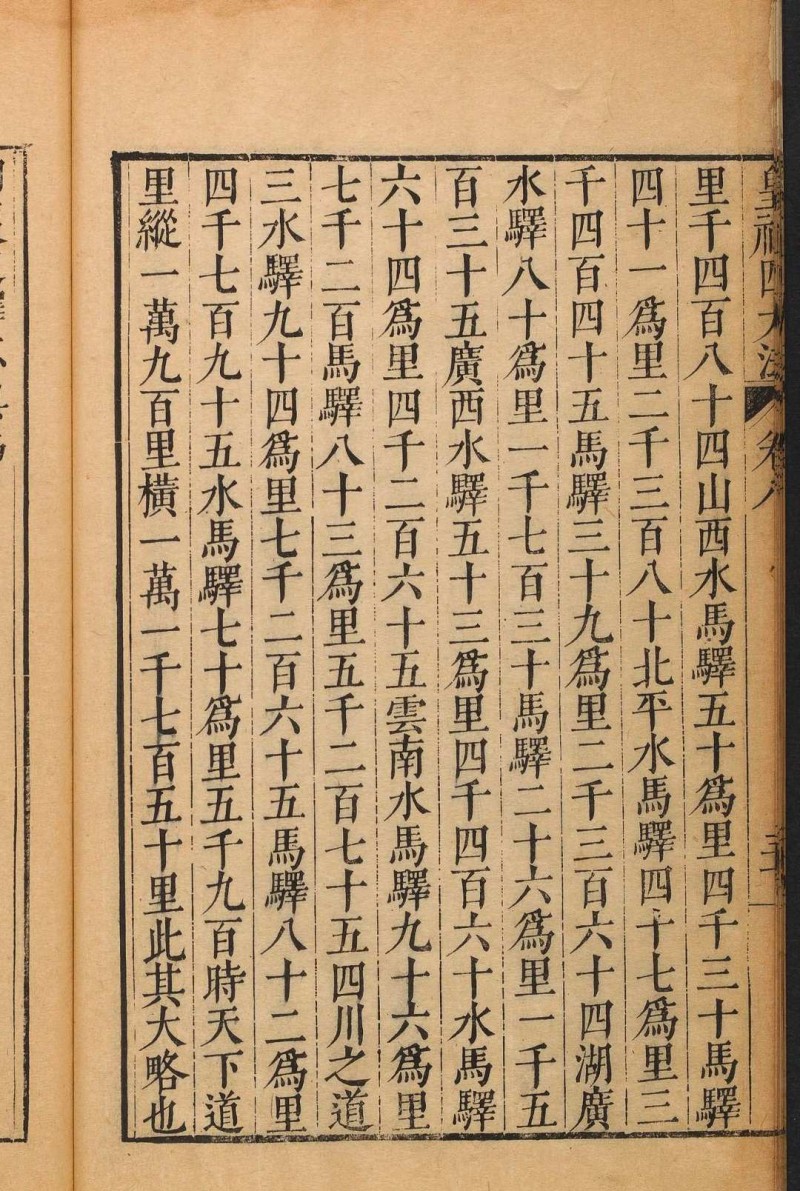 皇祖四大法 卷八
里千四百八十四山西水馬驛五十爲里四千三十馬驛
四十一爲里二千三百八十北平水馬驛四十七爲里三
千四百四十五馬驛三十九爲里二千三百六十四湖廣
水驛八十爲里一千七百三十馬驛二十六爲里一千五
百三十五廣西水驛五十三爲里四千四百六十水馬驛
六十四爲里四千二百六十五雲南水馬驛九十六爲里
七千二百馬驛八十三爲里五千二百七十五四川之道
三水驛九十四爲里七千二百六十五馬驛八十二爲里
四千七百九十五水馬驛七十爲里五千九百時天下道
里縱一萬九百里橫一萬一千七百五十里此其大略也